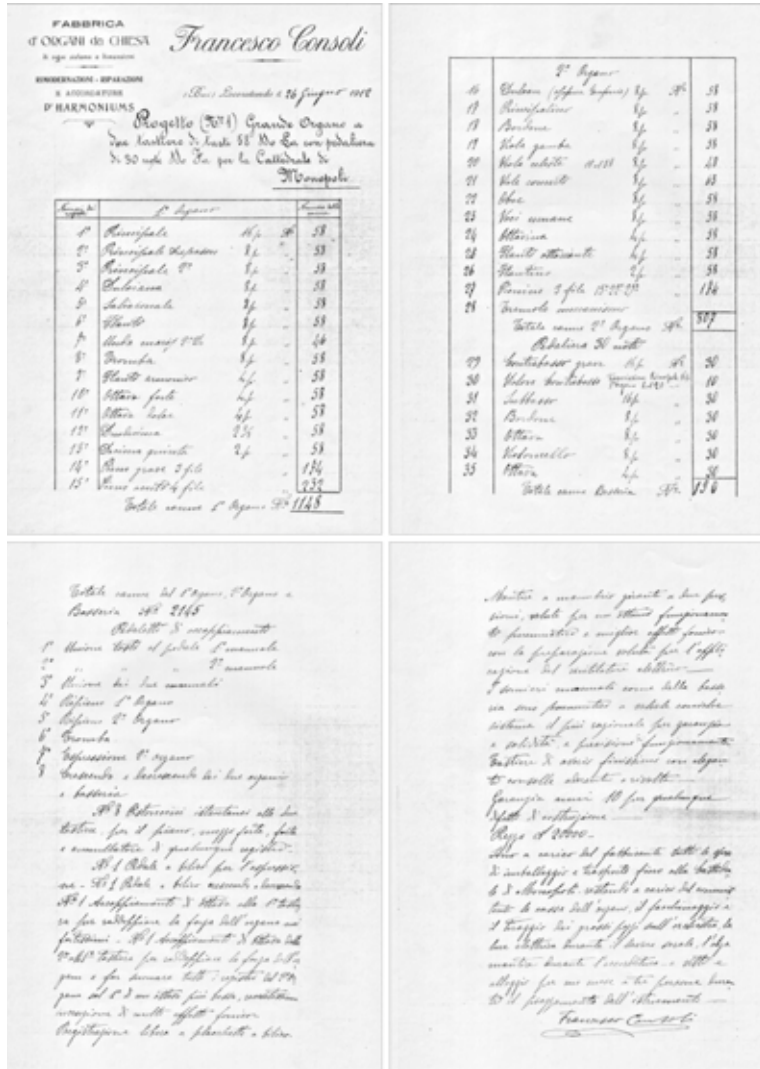 FABBRICA
d'ORGANI da CHIESA
Francesco Consoli
RIMODERNAZIONI - RIPARAZIONI
E ACCORDATURE
D'HARMONIUMS
(Bari) Locorotondo li 26 Giugno 1912
Progetto (N° 1) Grande Organo a
due tastiere di tasti 58 Do La con pedaliera
di 30 note Do Fa per la Cattedrale di
Monopoli
1° Organo
1° Principale 16 p. N° 58
2° Principale 8 p. " 58
3° Principale 2° 8 p. " 58
4° Dulciana 8 p. " 58
5° Salicionale 8 p. " 58
6° Flauto 8 p. " 58
7° Unda maris 8 p. " 46
8° Tromba 8 p. " 58
9° Flauto armonico 4 p. " 58
10° Ottava forte 4 p. " 58
11° Ottava dolce 4 p. " 58
12° Duodecima 2 ⅔ " 58
13° Decima quinta 2 p. " 58
14° Pieno grave 3 file " 174
15° Pieno acuto 4 file " 232
Totale canne 1° Organo N° 1148
2° Organo
16 8 p. N° 58
17 Principalino 8 p. " 58
18 Bordone 8 p. " 58
19 Viola gamba 8 p. " 58
20 Viola celeste 8 p. "
21 Viole 8 p. "
22 Oboe 8 p. " 58
23 Voci umane 8 p. " 58
24 Ottavina 4 p. " 58
25 Flauto ottaviante 4 p. " 58
26 Flautino 2 p. " 58
27 Pienino 3 file 15ª 19ª 22ª " 174
28 Tremolo meccanismo
Totale canne 2° Organo N° 807
Pedaliera 30 note
29 Contrabasso grave 16 p. N° 30
30 Contrabasso " 10
31 Subbasso 16 p. " 30
32 Bordone 8 p. " 30
33 Ottava 8 p. " 30
34 Violoncello 8 p. " 30
35 Ottava 4 p. " 30
Totale canne Basseria N° 190
Totale canne del 1° Organo, 2° Organo e
Basseria N° 2145
Pedaletti di accoppiamento
1° Unione tasto al pedale 1° manuale
2° " " " 2° manuale
3° Unione dei due manuali
4° Ripieno 1° Organo
5° Ripieno 2° Organo
6° Tromba
7° Espressione 2° organo
8 Crescendo e decrescendo dei due organi
e basseria
N° 8 Pistoncini istantanei alle due
tastiere, per il piano, mezzo forte, forte
e annullatore di qualunque registro.
N° 1 Pedale a bilico per l'espressio-
ne - N° 1 Pedale a bilico crescendo e decrescendo
N° 1 Accoppiamento di ottava alla 1ª tastie-
ra per raddoppiare la forza dell'organo nei
fortissimi - N° 1 Accoppiamento di ottava della
tastiera per raddoppiare la forza dell'or-
gano e far suonare tutti i registri del 2° Or-
gano sul 1° di una ottava più bassa,
di molti effetti fonici
Registrazione libera a placchette a bilico.
Mantice a manubrio girante a due pres-
sioni, valute per un ottimo funzionamen-
to pneumatico e migliore effetto fonico
con la preparazione voluta per l'appli-
cazione del ventilatore elettrico
I somieri manuali come della basse-
ria sono pneumatici a valvole coniche
sistema il più razionale per garanzia
e solidità e precisione funzionamento
Tastiere di avorio finissimo con elegan-
te consolle
Garanzia anni 10 per qualunque
difetto di costruzione
Prezzo £ 20000 -
Sono a carico del fabbricante tutte le spese
di imballaggio e trasporto fino alla Cattedra-
le di Monopoli restando a carico del commit-
tente la cassa dell'organo, il facchinaggio e
il tiraggio dei grossi pezzi sull'orchestra, la
luce elettrica durante il lavoro serale, l'alza
mantice durante l'accordatura e vitto e
alloggio per un mese a tre persone duran-
te il piazzamento dell'istrumento
Francesco Consoli